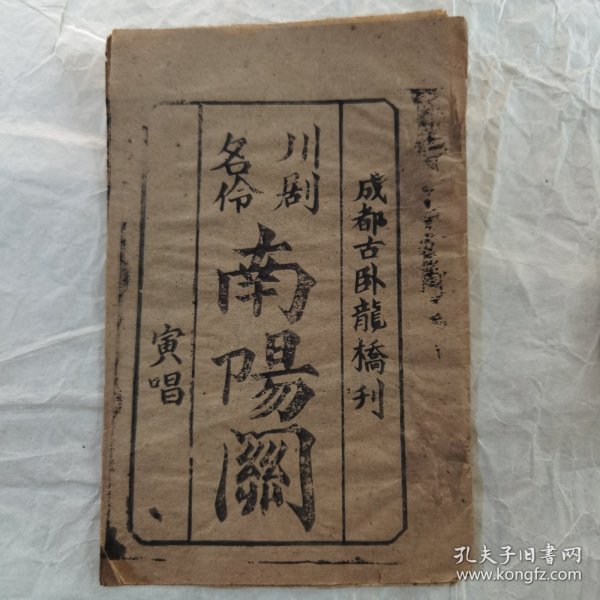 成都古卧龍橋刊
川剧
名伶
南陽關
寅唱
孔夫子旧書网
www.kongfz.com